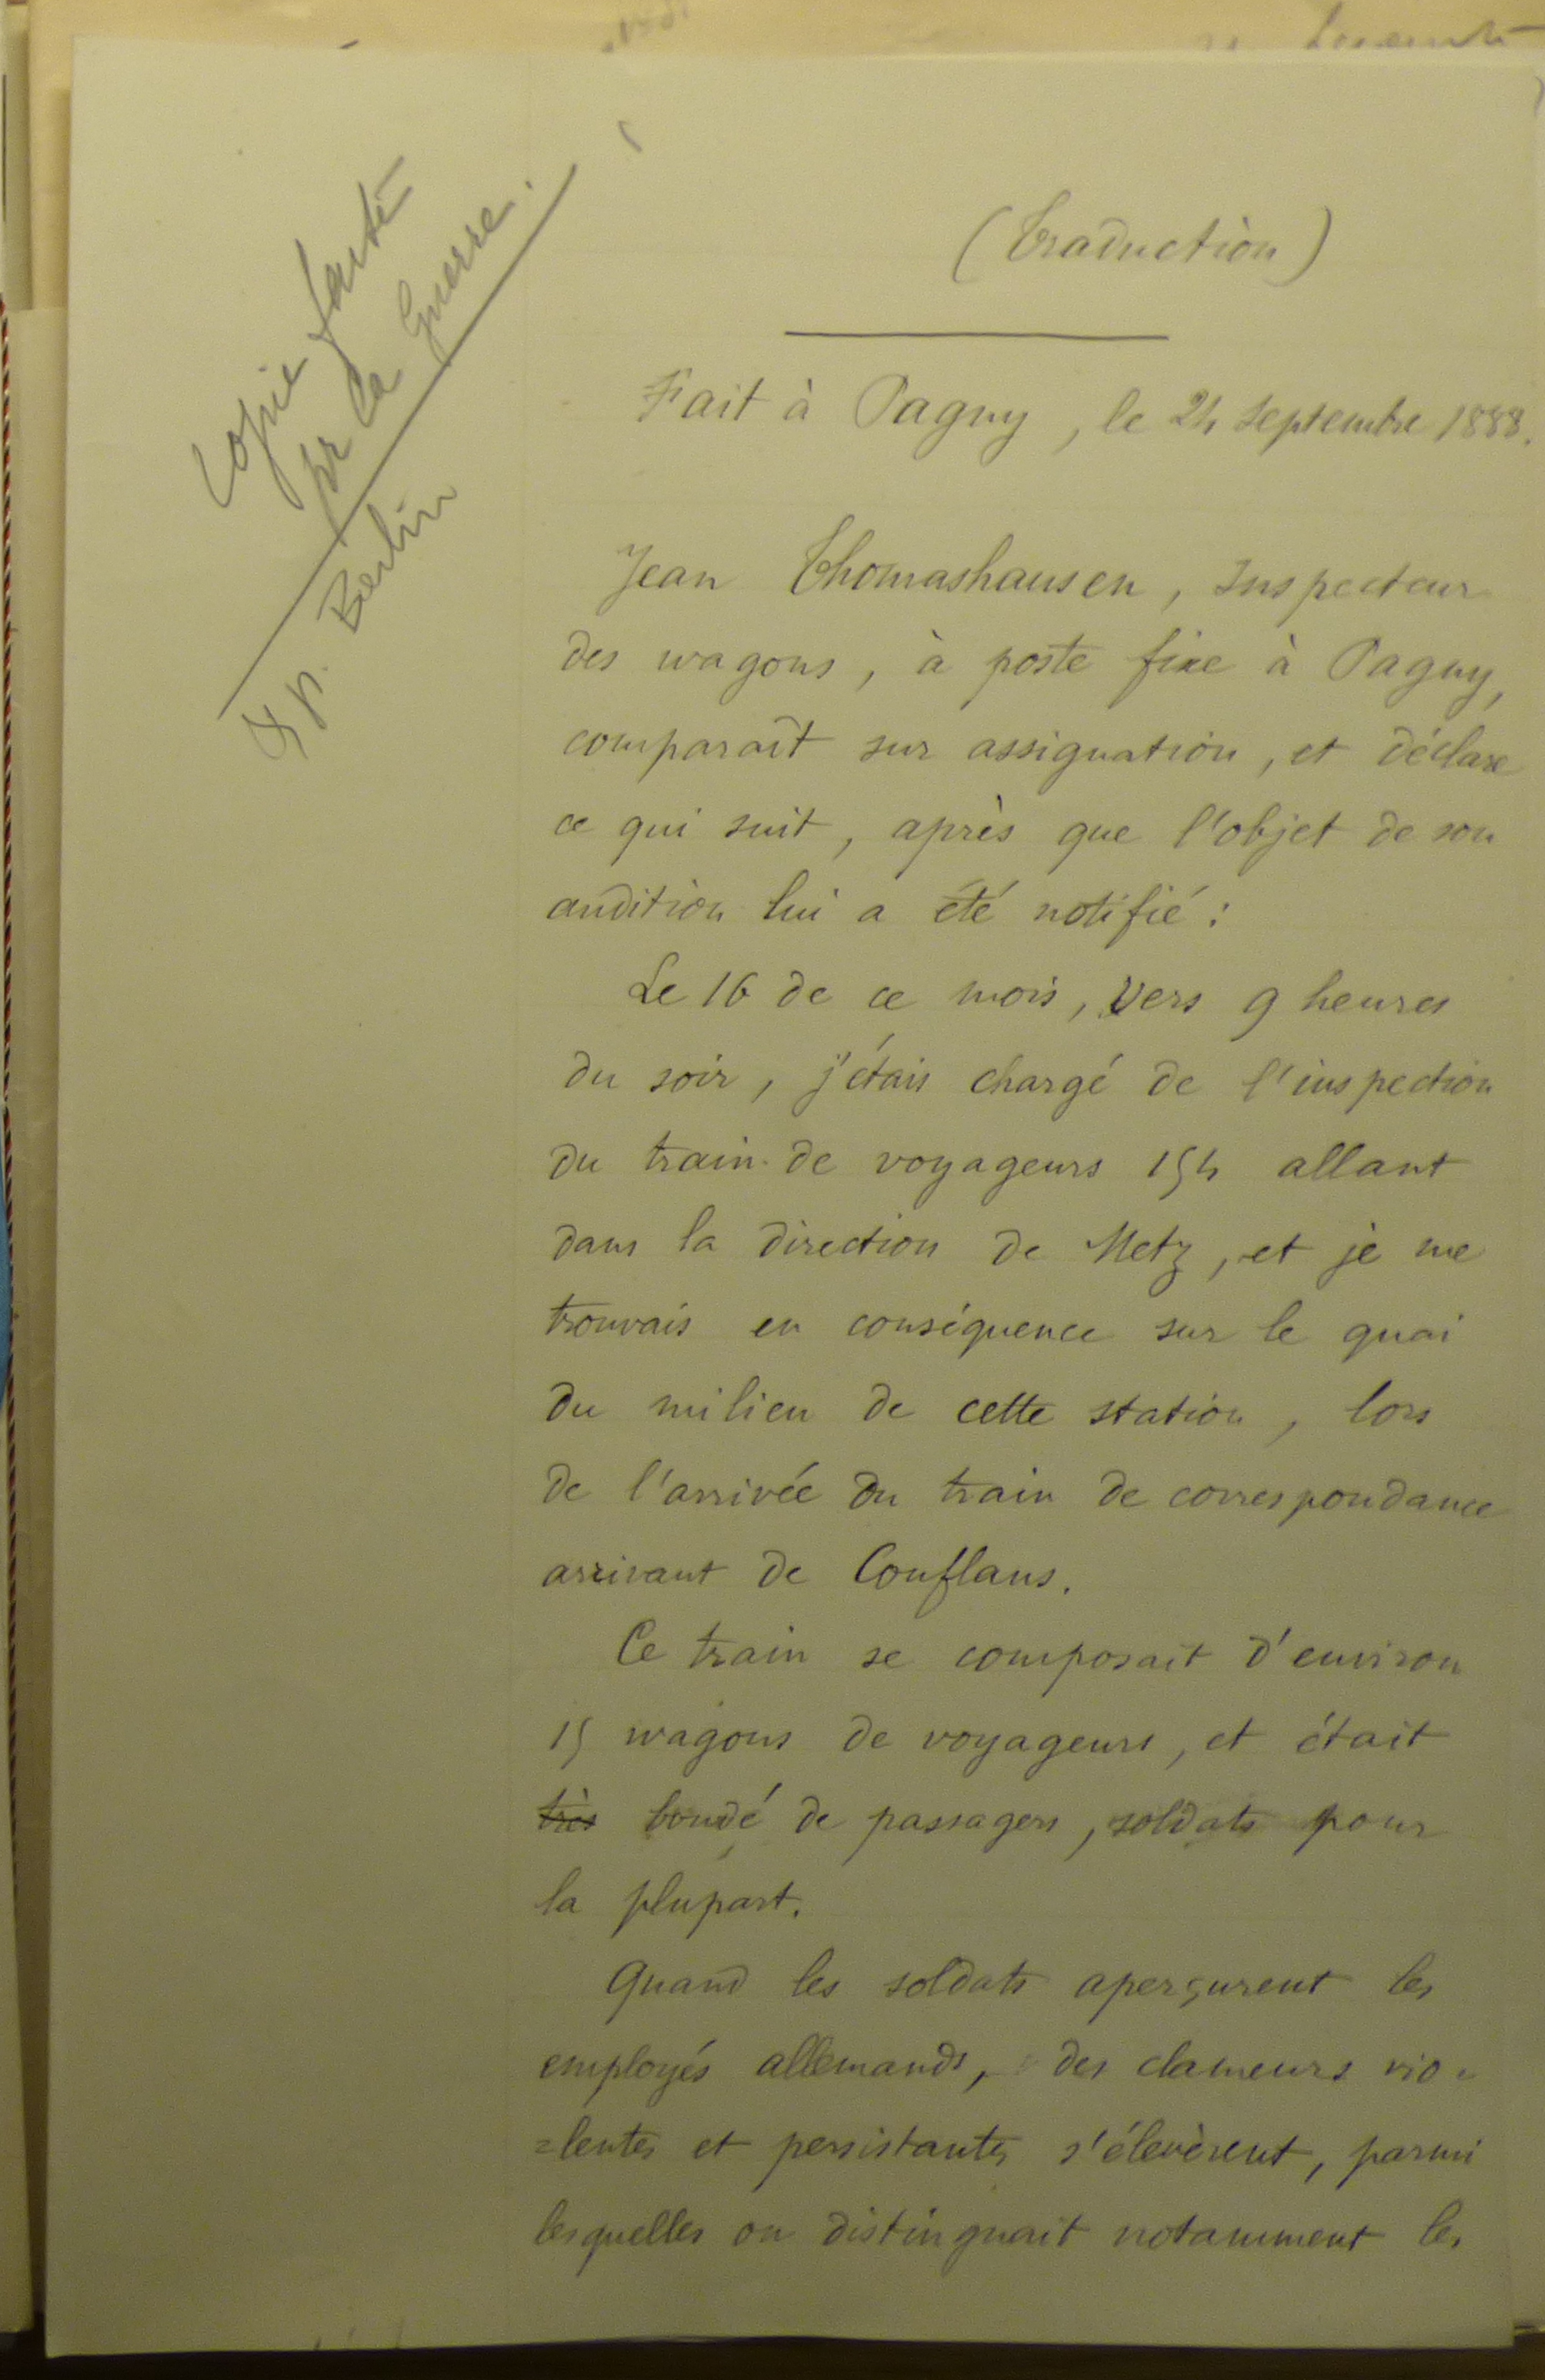 (Traduction)
Copie faite
pr la Guerre.
Berlin
Fait à Pagny, le 24 septembre 1888.
Jean Thomashausen, Inspecteur
des wagons, à poste fixe à Pagny,
comparaît sur assignation, et déclare
ce qui suit, après que l'objet de son
audition lui a été notifié :
Le 16 de ce mois, vers 9 heures
du soir, j'étais chargé de l'inspection
du train de voyageurs 154 allant
dans la direction de Metz, et je me
trouvais en conséquence sur le quai
du milieu de cette station, lors
de l'arrivée du train de correspondance
arrivant de Conflans.
Ce train se composait d'environ
15 wagons de voyageurs, et était
très bondé de passagers, soldats pour
la plupart.
Quand les soldats aperçurent les
employés allemands, des clameurs vio=
=lentes et persistantes s'élevèrent, parmi
lesquelles on distinguait notamment les